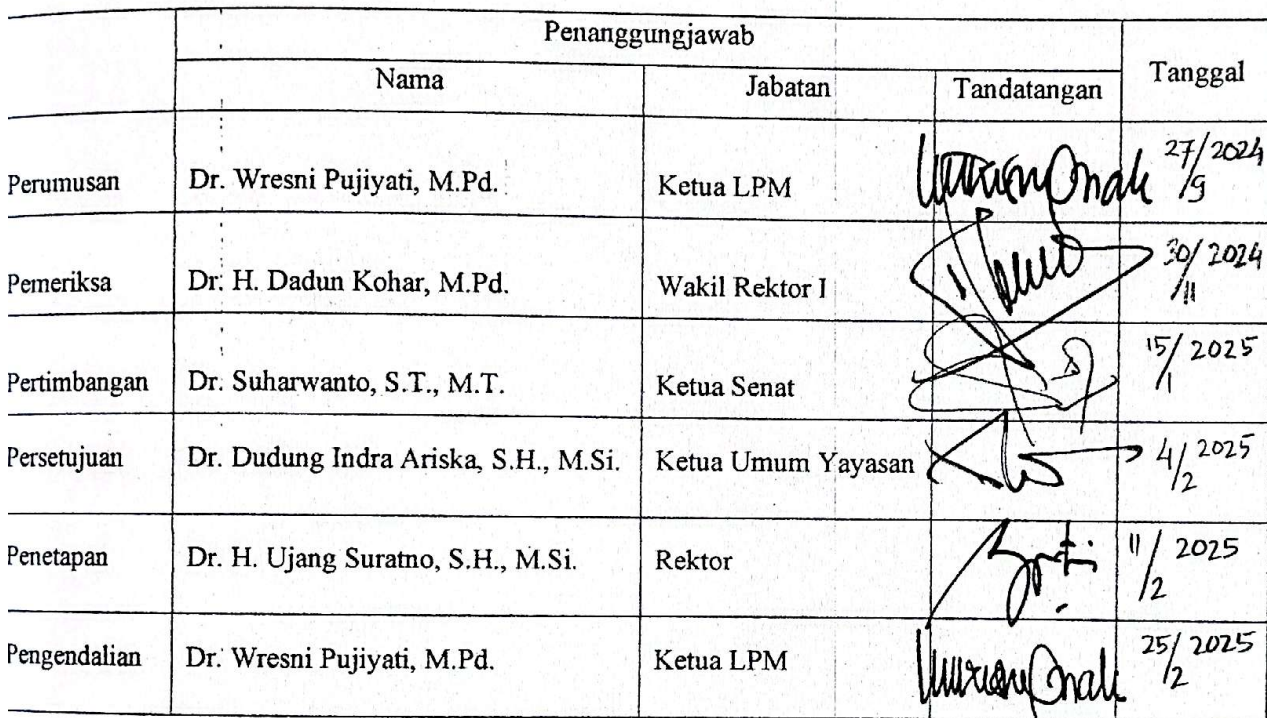 Penanggungjawab
Nama Jabatan Tandatangan Tanggal
Perumusan Dr. Wresni Pujiyati, M.Pd. Ketua LPM 27/9 2024
Pemeriksa Dr. H. Dadun Kohar, M.Pd. Wakil Rektor I 30/11 2024
Pertimbangan Dr. Suharwanto, S.T., M.T. Ketua Senat 15/1 2025
Persetujuan Dr. Dudung Indra Ariska, S.H., M.Si. Ketua Umum Yayasan 4/2 2025
Penetapan Dr. H. Ujang Suratno, S.H., M.Si. Rektor 11/2 2025
Pengendalian Dr. Wresni Pujiyati, M.Pd. Ketua LPM 25/2 2025